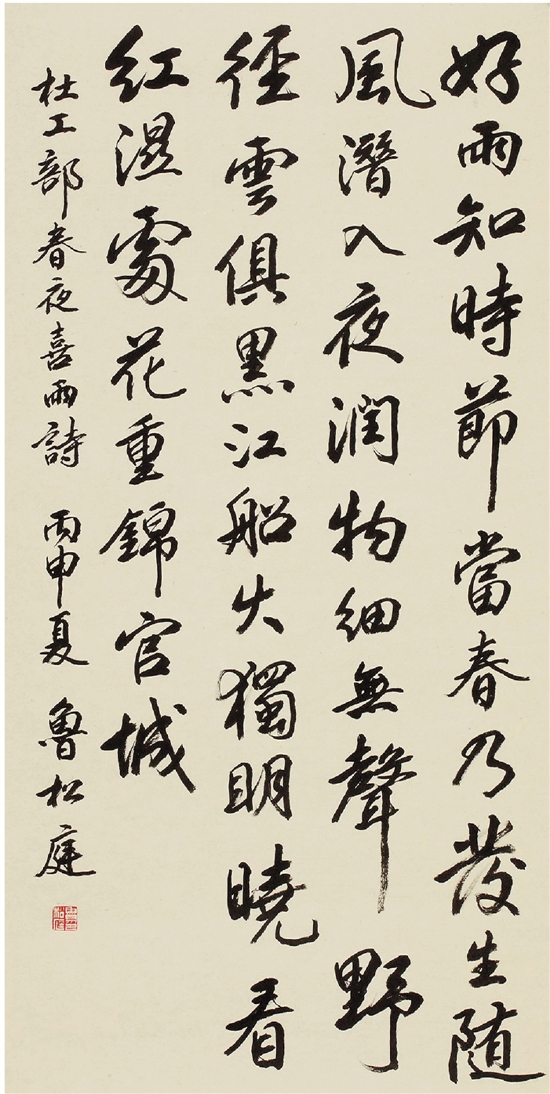 好雨知時節當春乃發生随
風潛入夜潤物細無聲野
徑雲俱黑江船火獨明曉看
紅濕處花重錦官城
杜工部春夜喜雨詩 丙申夏 魯松庭